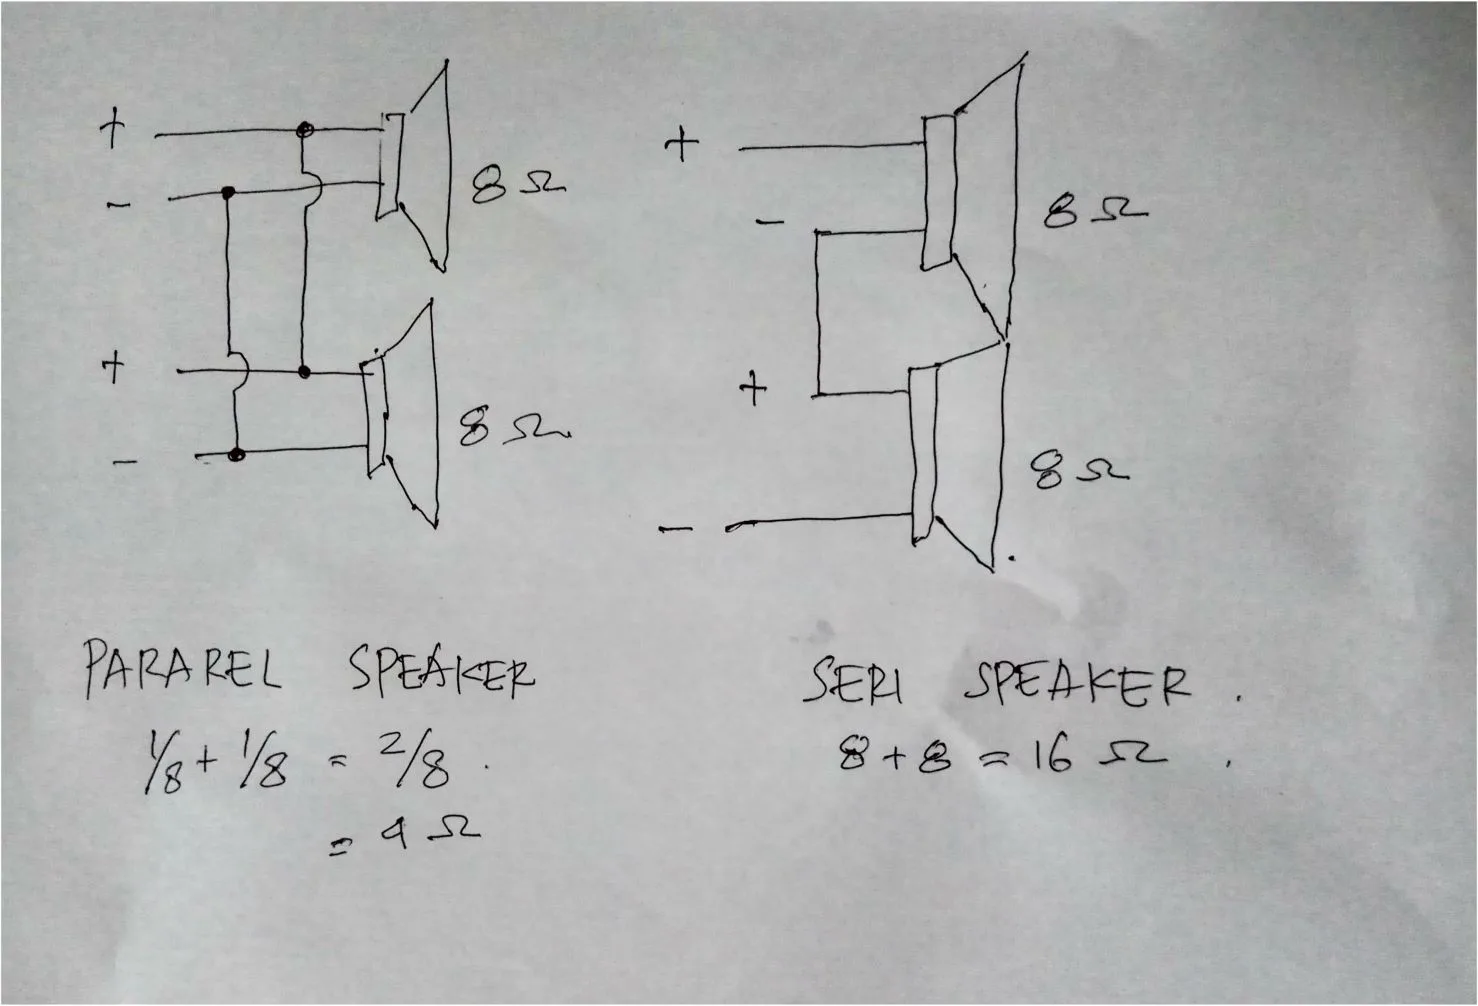 +
-
8 Ω
+
-
8 Ω
PARAREL SPEAKER
1/8 + 1/8 = 2/8 .
= 4 Ω
+
-
8 Ω
+
-
8 Ω
SERI SPEAKER .
8 + 8 = 16 Ω .